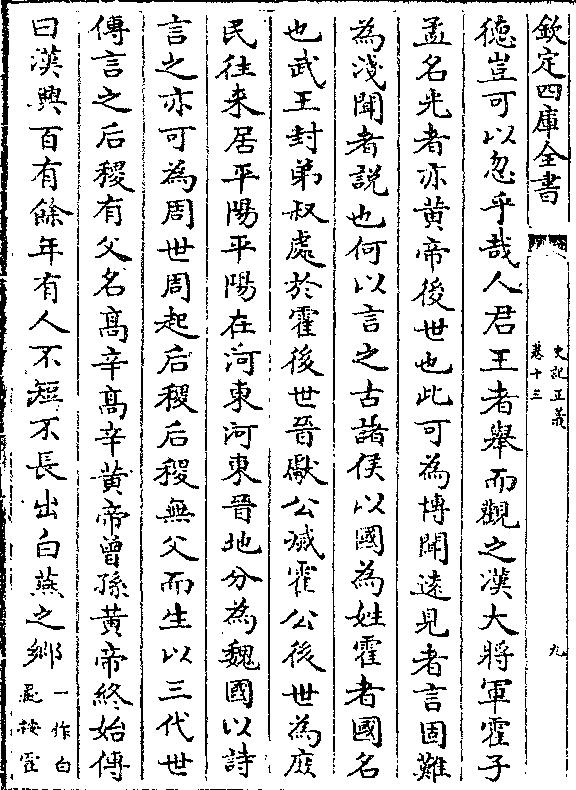 欽定四庫全書
史記正義
卷十三
九
德豈可以忽乎哉人君王者舉而觀之漢大將軍霍子
孟名光者亦黃帝後世也此可為博聞逺見者言固難
為淺聞者說也何以言之古諸侯以國為姓霍者國名
也武王封弟叔處於霍後世晉獻公滅霍公後世為庶
民往來居平陽平陽在河東河東晉地分為魏國以詩
言之亦可為周世周起后稷后稷無父而生以三代世
傳言之后稷有父名髙辛髙辛黃帝曾孫黃帝終始傳
曰漢興百有餘年有人不短不長出白燕之鄉
一作白
彘按霍